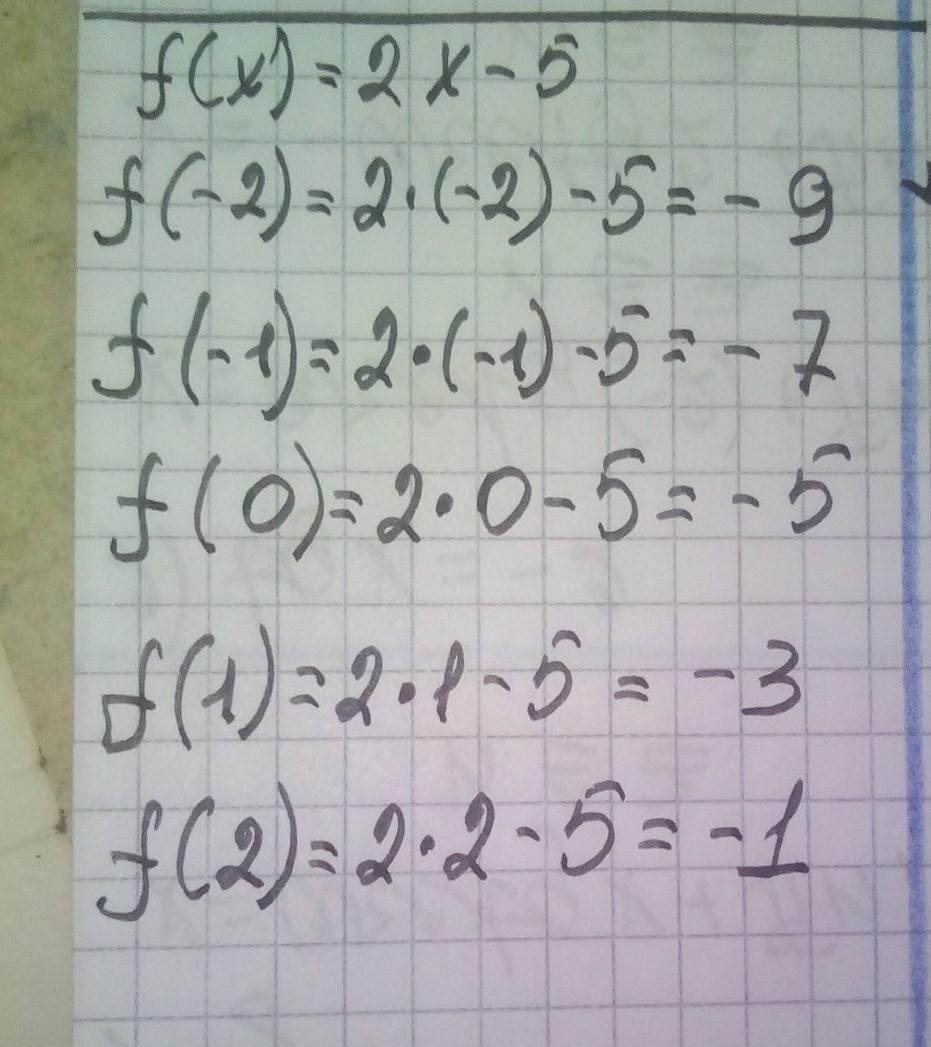 f(x) = 2x - 5
f(-2) = 2·(-2) - 5 = - 9
f(-1) = 2·(-1) - 5 = - 7
f(0) = 2·0 - 5 = - 5
f(1) = 2·1 - 5 = - 3
f(2) = 2·2 - 5 = - 1